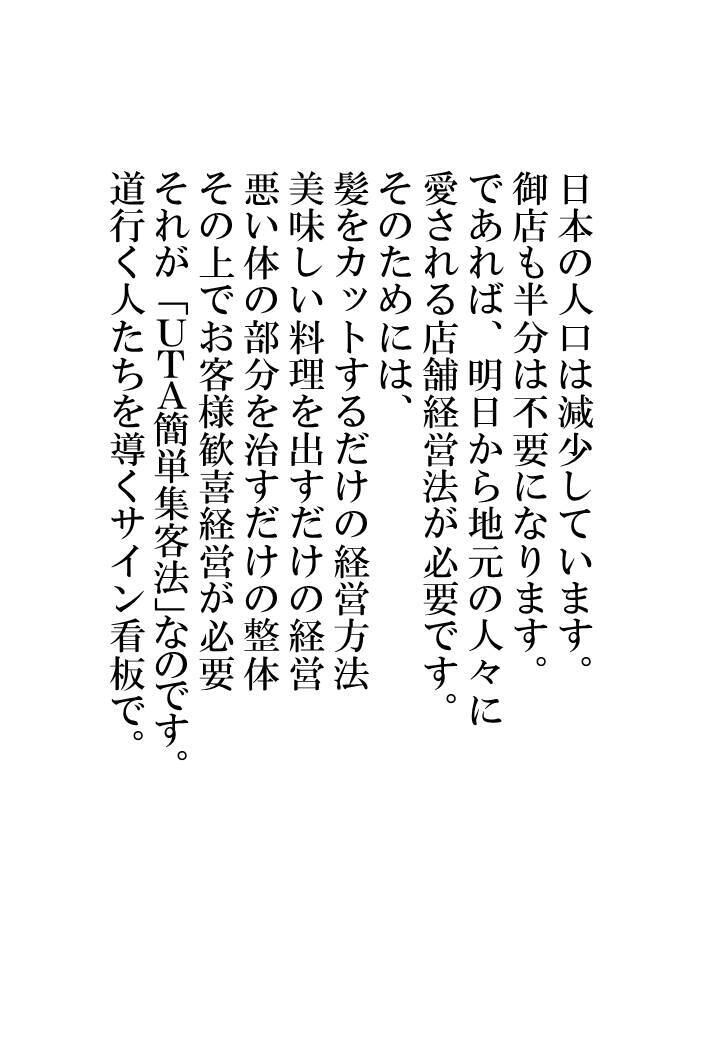 日本の人口は減少しています。
御店も半分は不要になります。
であれば、明日から地元の人々に
愛される店舗経営法が必要です。
そのためには、
髪をカットするだけの経営方法
美味しい料理を出すだけの経営
悪い体の部分を治すだけの整体
その上でお客様歓喜経営が必要
それが「UTA簡単集客法」なのです。
道行く人たちを導くサイン看板で。